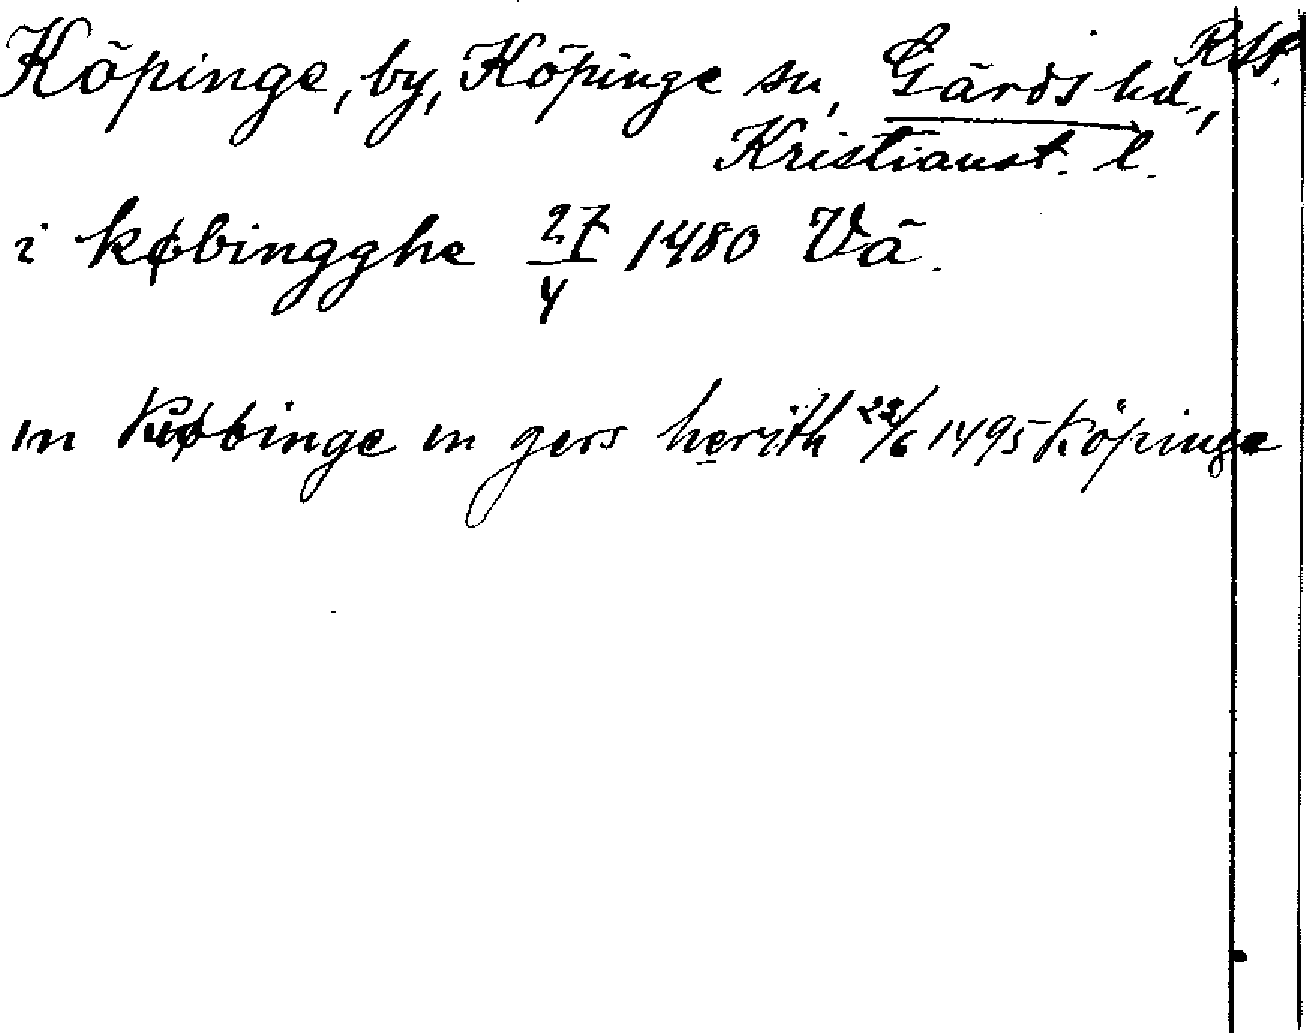 Köpinge, by, Köpinge sn, Gärds hd.,
Kristianst. l.
i købingghe 27/4 1480 Vä.
in Købinge in gers herith 22/6 1495 Köpinge